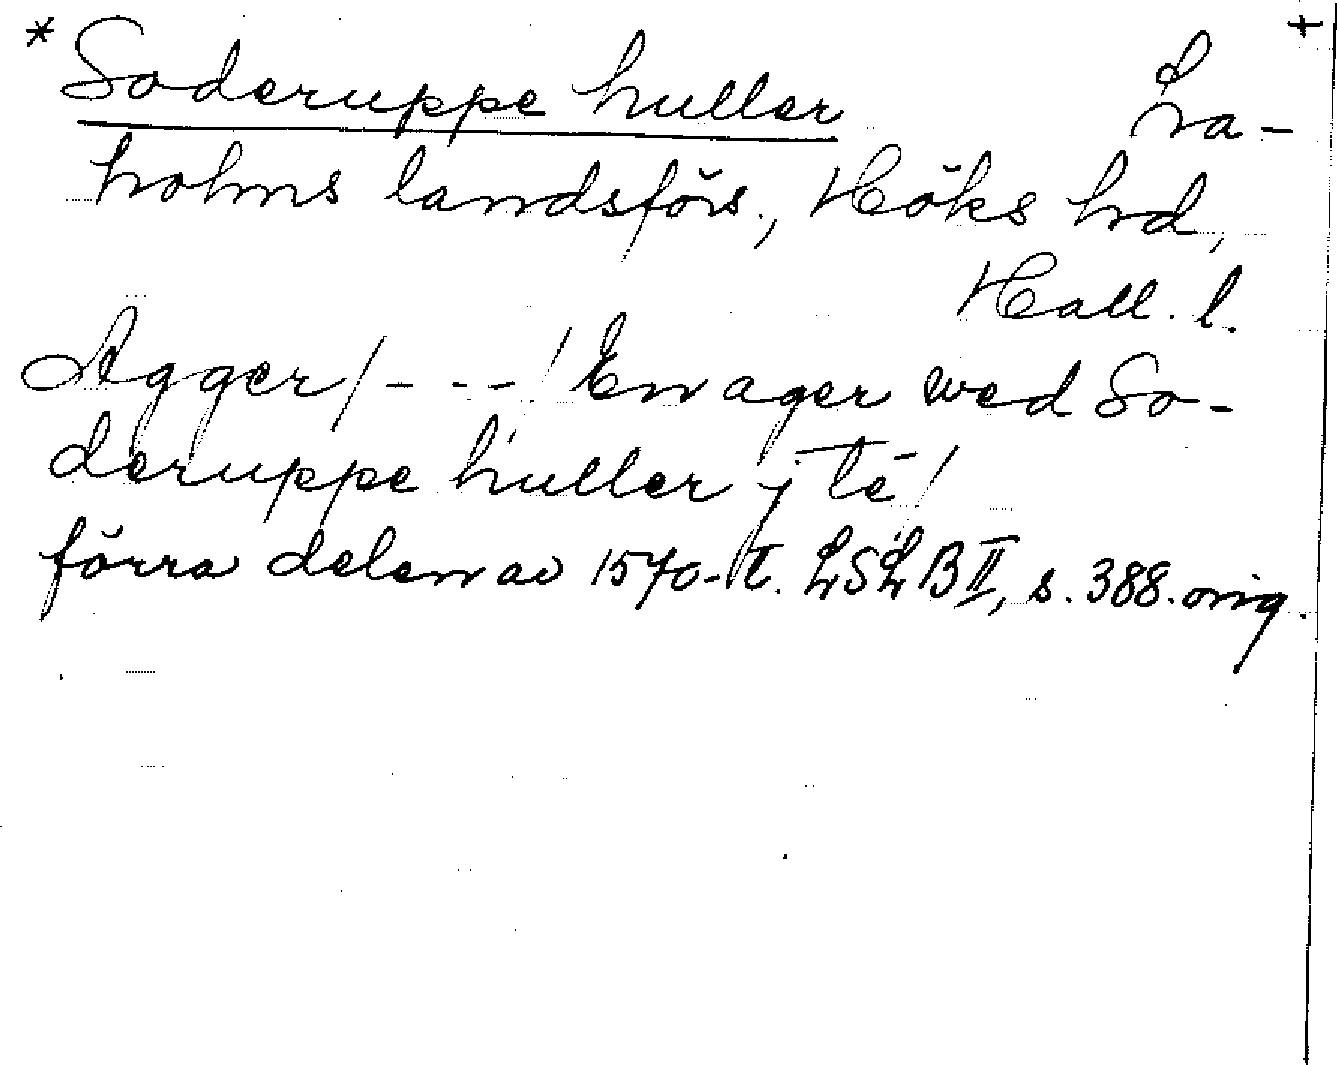 * Soderuppe huller La- +
holms landsförs., Höks hrd,
Hall. l.
Agger / - - - / En ager wed So-
deruppe huller j té /
förra delen av 1570-t. LSLB II, s. 388. orig.